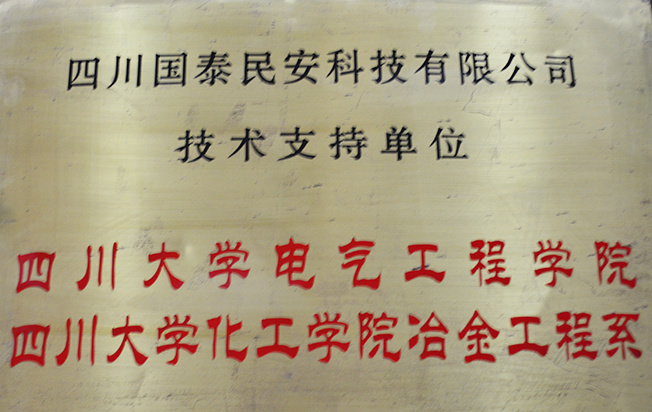 四川国泰民安科技有限公司
技术支持单位
四川大学电气工程学院
四川大学化工学院冶金工程系